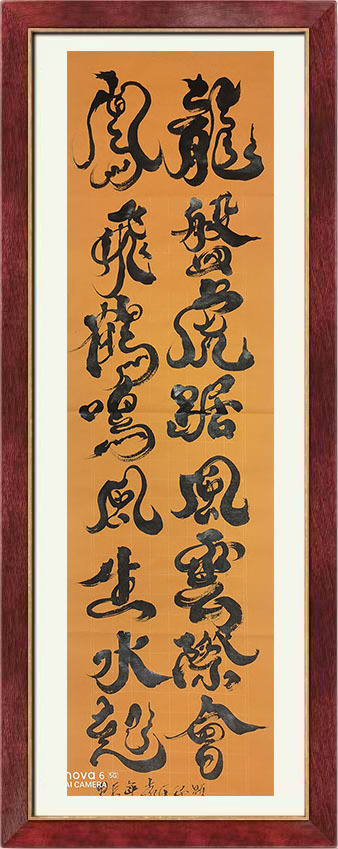 龍盤虎踞風雲際會
鳳飛鶴鳴風生水起
nova 6 5G
AI CAMERA